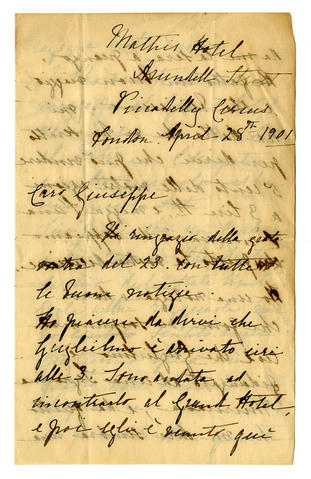 Mathis Hotel
Arundell St
Piccadilly Circus
London. April 28th 1901
Caro Giuseppe
Vi ringrazio della grata
vostra del 23. con tutte
le buone notizie.
Ho piacere da dirvi che
Guglielmo è arrivato
alle 3. Sono andata ad
incontrarlo al Grand Hotel,
e poi egli è venuto quì